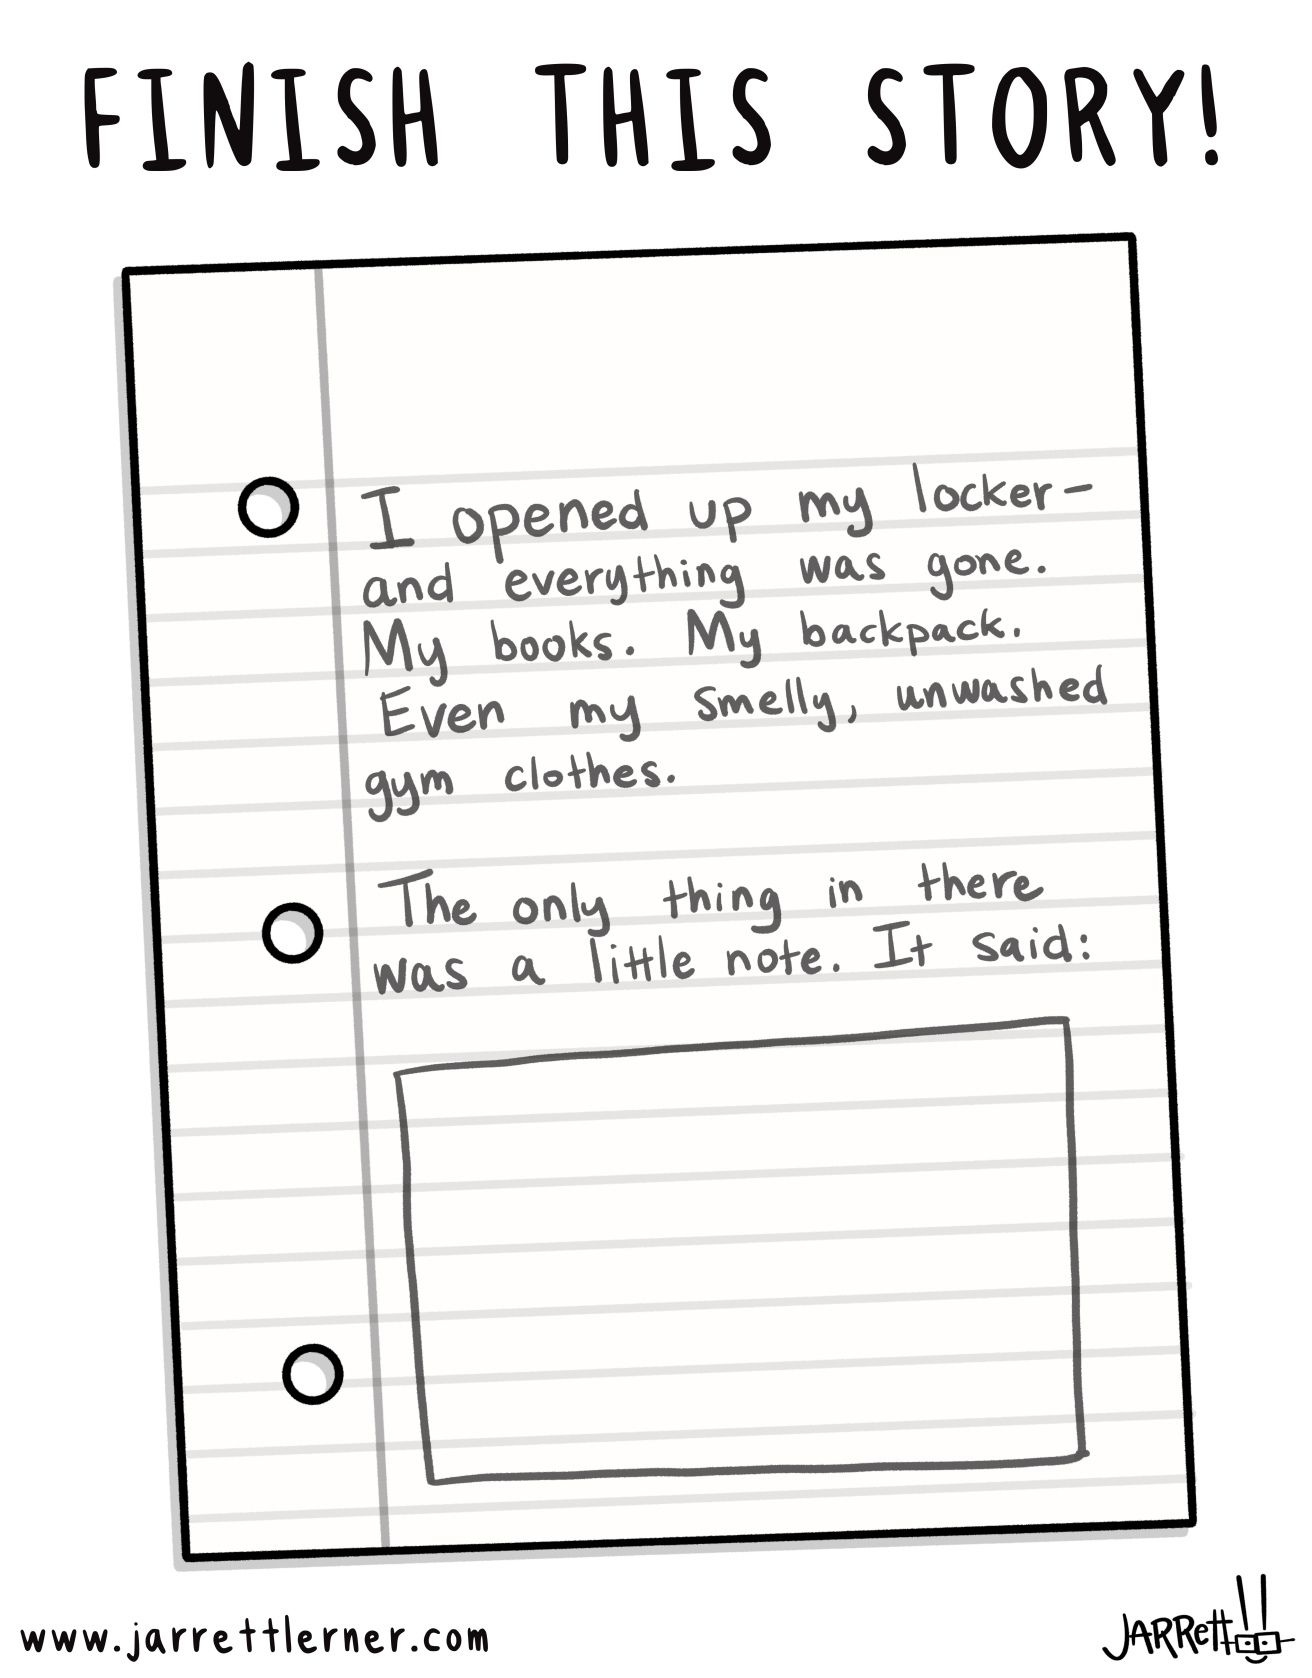 FINISH THIS STORY!
I opened up my locker-
and everything was gone.
My books. My backpack.
Even my smelly, unwashed
gym clothes.
The only thing in there
was a little note. It said:
www.jarrettlerner.com
JARRett!!